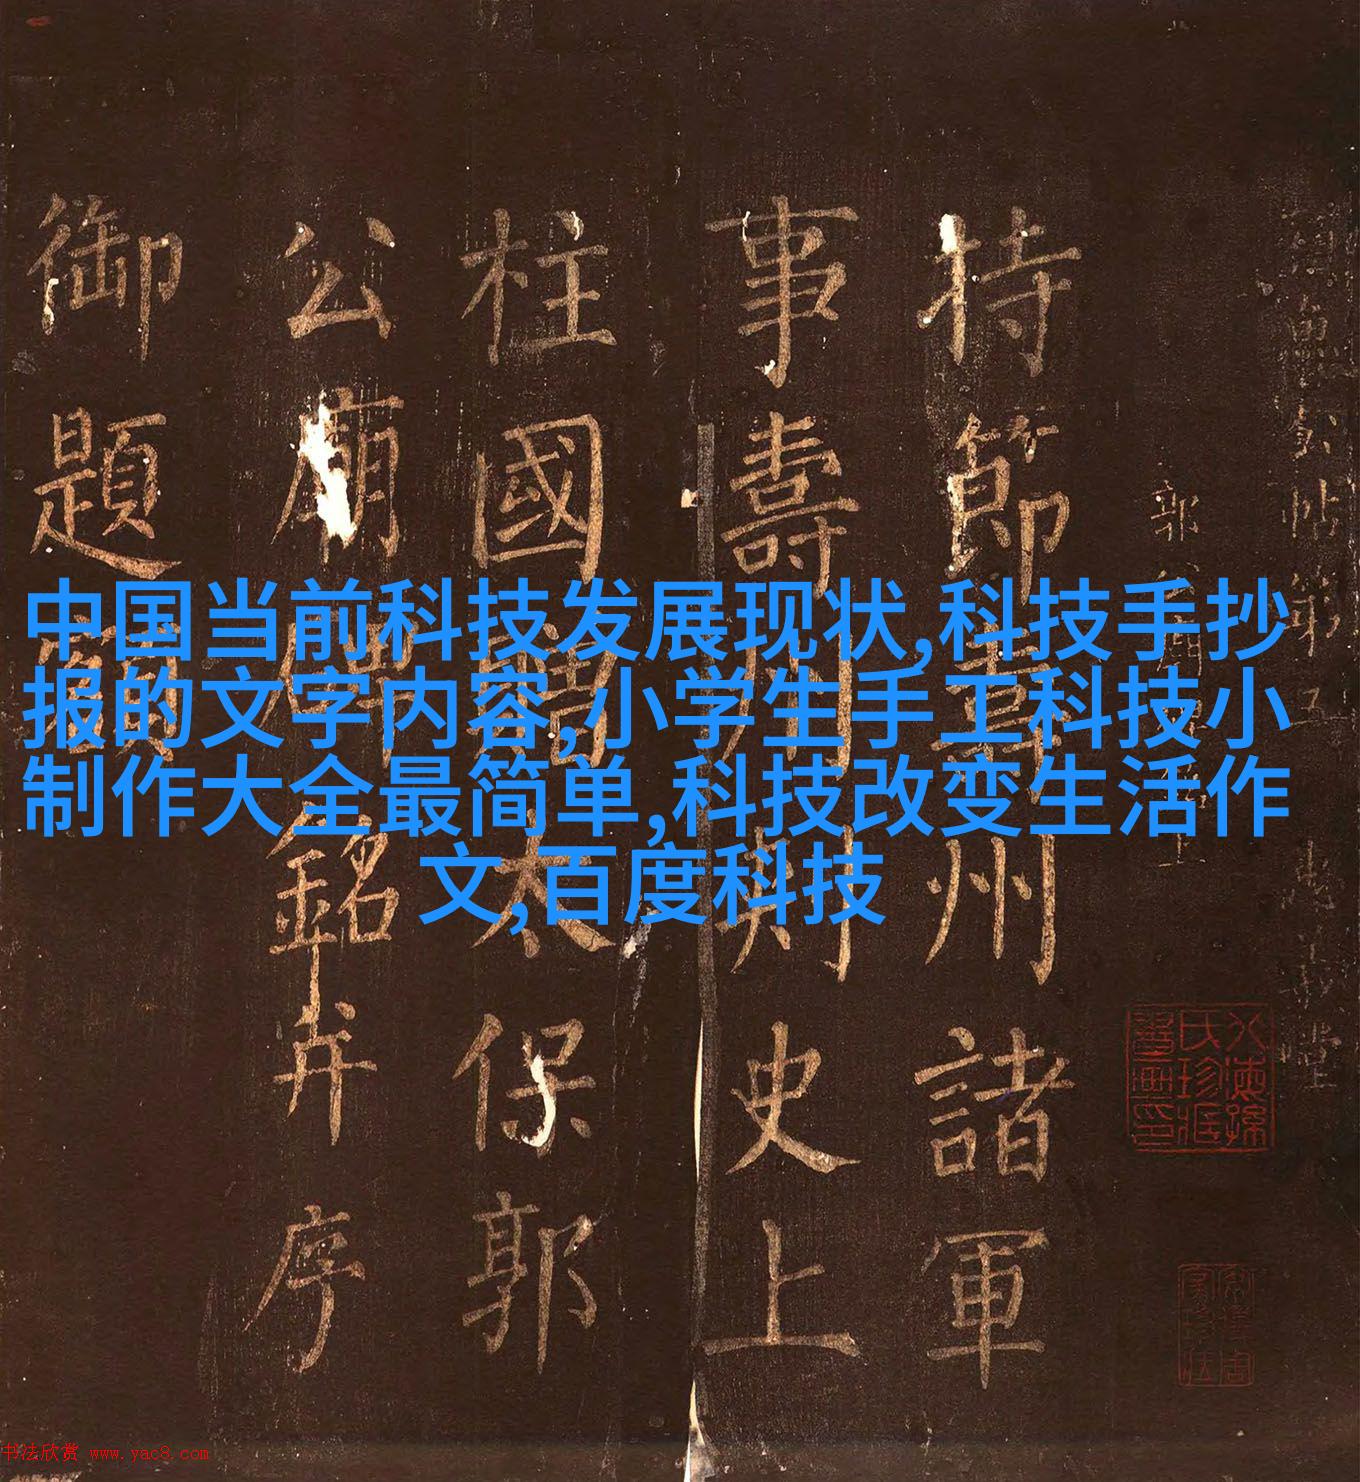 中国当前科技发展现状,科技手抄
报的文字内容,小学生手工科技小
制作大全最简单,科技改变生活作
文,百度科技
持節壽州諸軍
事壽州刺史上
柱國 太保郭
公廟 銘并序
御題額
書法欣赏 www.yac8.com